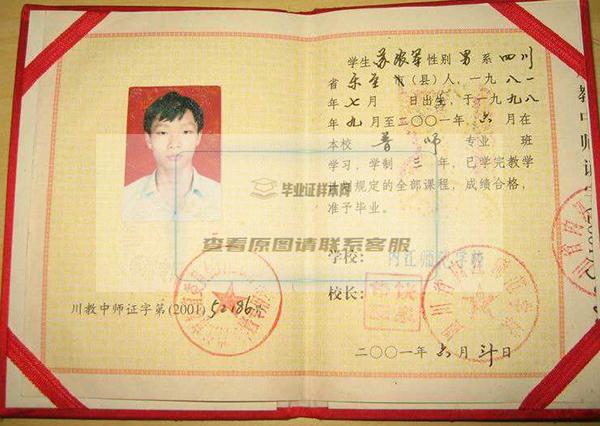 学生苏 军性别男系四川
省乐至市(县)人,一九八一
年七月 日出生,于一九九八
年九月至二〇〇一年六月在
本校普师专业 班
学习,学制三年,已学完教学
计划规定的全部课程,成绩合格,
准予毕业。
毕业证样本网
查看原图请联系客服
学校:内江师范学校
校长:
川教中师证字第(2001)52186号
二〇〇一年六月 日